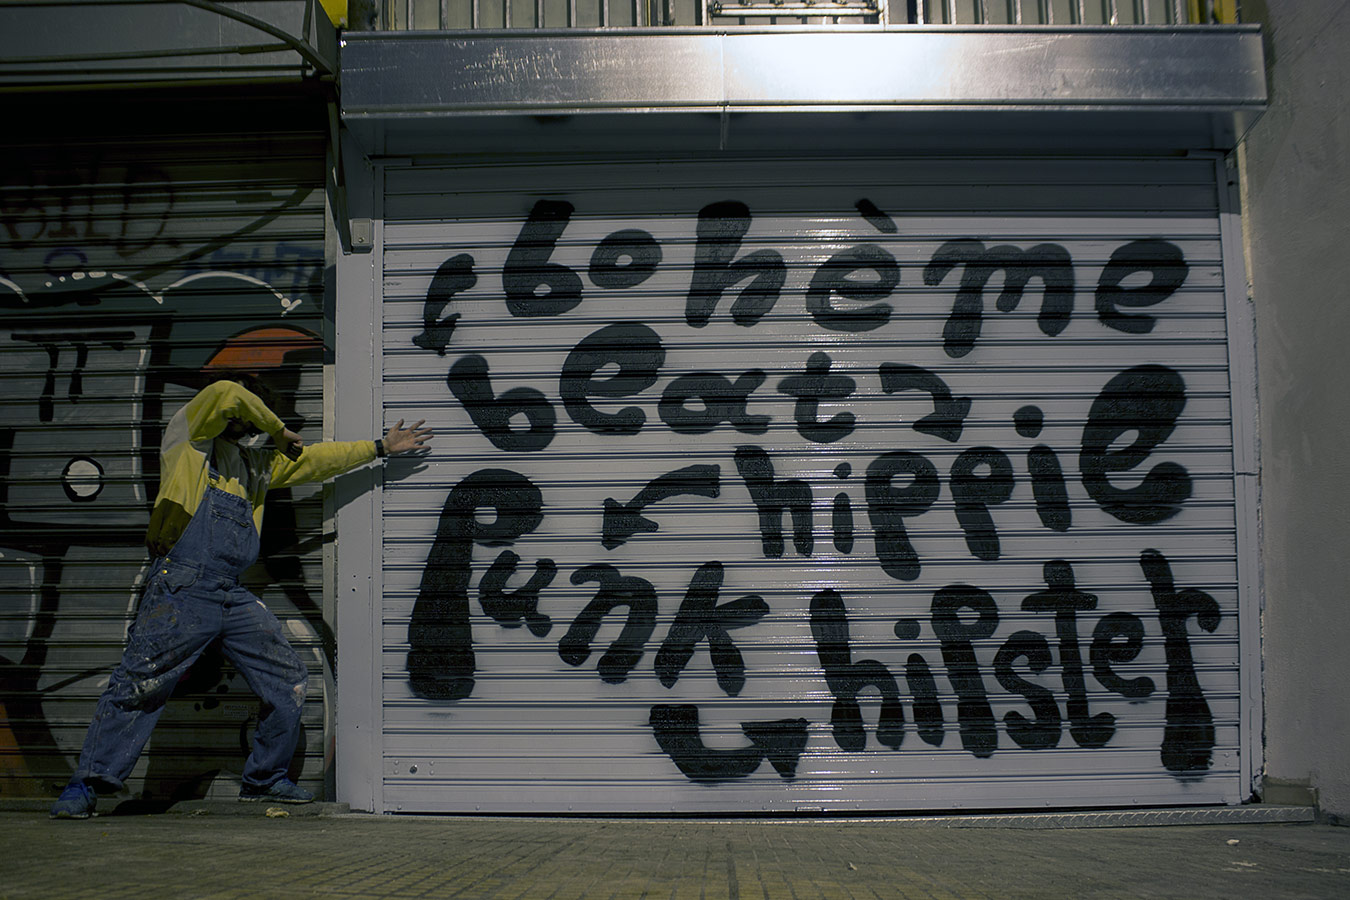 bohème
beat
hippie
punk
hipster